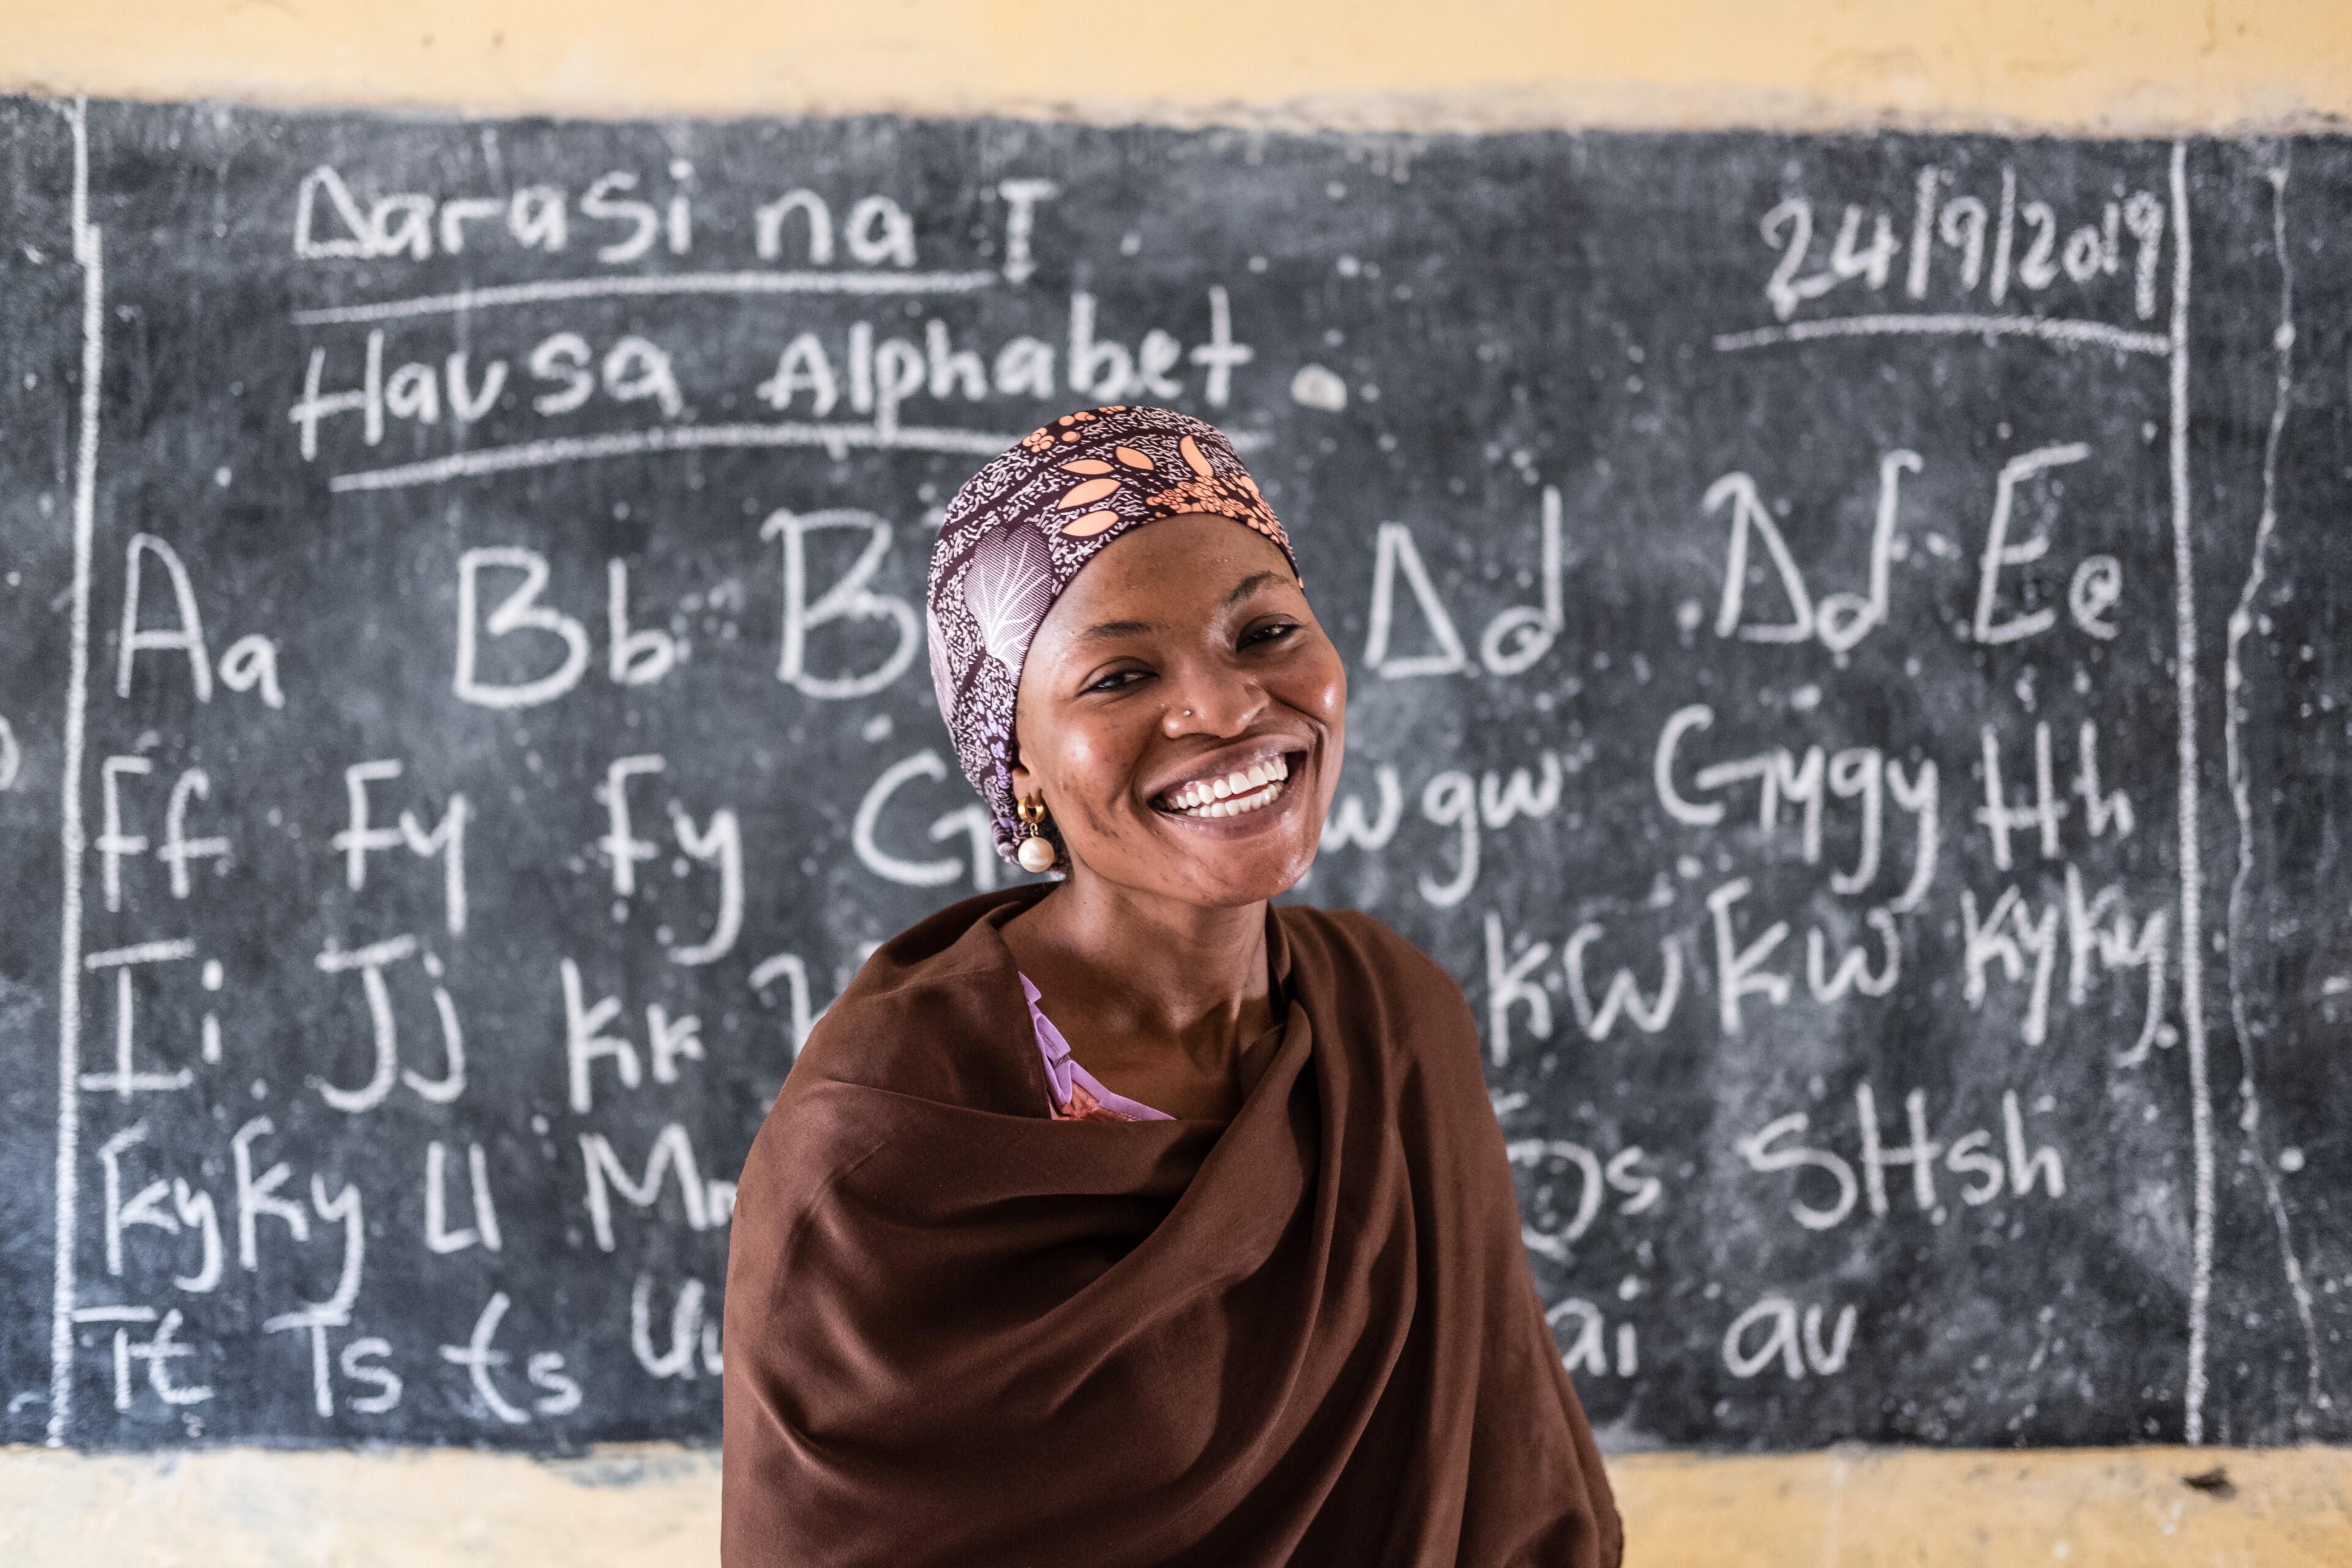 Darasi na I
24/9/2019
Hausa Alphabet
Aa Bb B Dd Ɗɗ Ee
Ff Fy fy G w gw Gygy Hh
Ii Jj Kk Kw Ƙw Kyky
Ƙyƙy Ll Mm s SHsh
Tt Ts ts Uu ai au